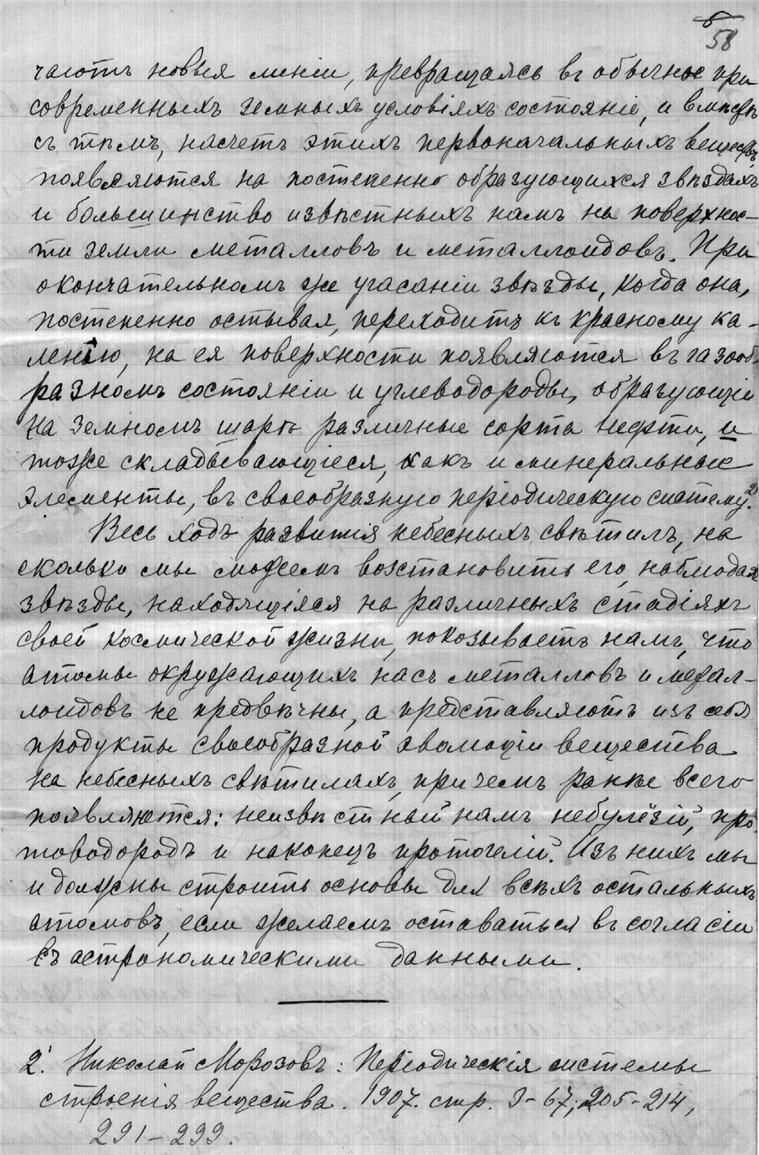 58
чаютъ новыя линіи, превращаясь въ обычное при
современныхъ земныхъ условіяхъ состояніе, и вмѣстѣ
съ тѣмъ, насчетъ этихъ первоначальныхъ веществъ,
появляются на постепенно образующихся звѣздахъ
и большинство извѣстныхъ намъ на поверхнос-
ти земли металловъ и металлоидовъ. При
окончательномъ же угасаніи звѣзды, когда она,
постепенно остывая, переходитъ къ красному ка-
ленію, на ея поверхности появляются въ газооб-
разномъ состояніи и углеводороды, образующіе
на земномъ шарѣ различные сорта нефти, и
тоже складывающіеся, какъ и минеральные
элементы, въ своеобразную періодическую систему.2)
Весь ходъ развитія небесныхъ свѣтилъ, на
сколько мы можемъ возстановить его, наблюдая
звѣзды, находящіяся на различныхъ стадіяхъ
своей космической жизни, показываетъ намъ, что
атомы окружающихъ насъ металловъ и метал-
лоидовъ не предвѣчны, а представляютъ изъ себя
продукты своеобразной эволюціи вещества
на небесныхъ свѣтилахъ, причемъ ранѣе всего
появляются: неизвѣстный намъ небулёзій, про-
товодородъ и наконецъ протогелій. Изъ нихъ мы
и должны строить основы для всѣхъ остальныхъ
атомовъ, если желаемъ оставаться въ согласіи
съ астрономическими данными.
2. Николай Морозовъ: Періодическія системы
строенія вещества. 1907. стр. 3-67; 205-214,
291-299.